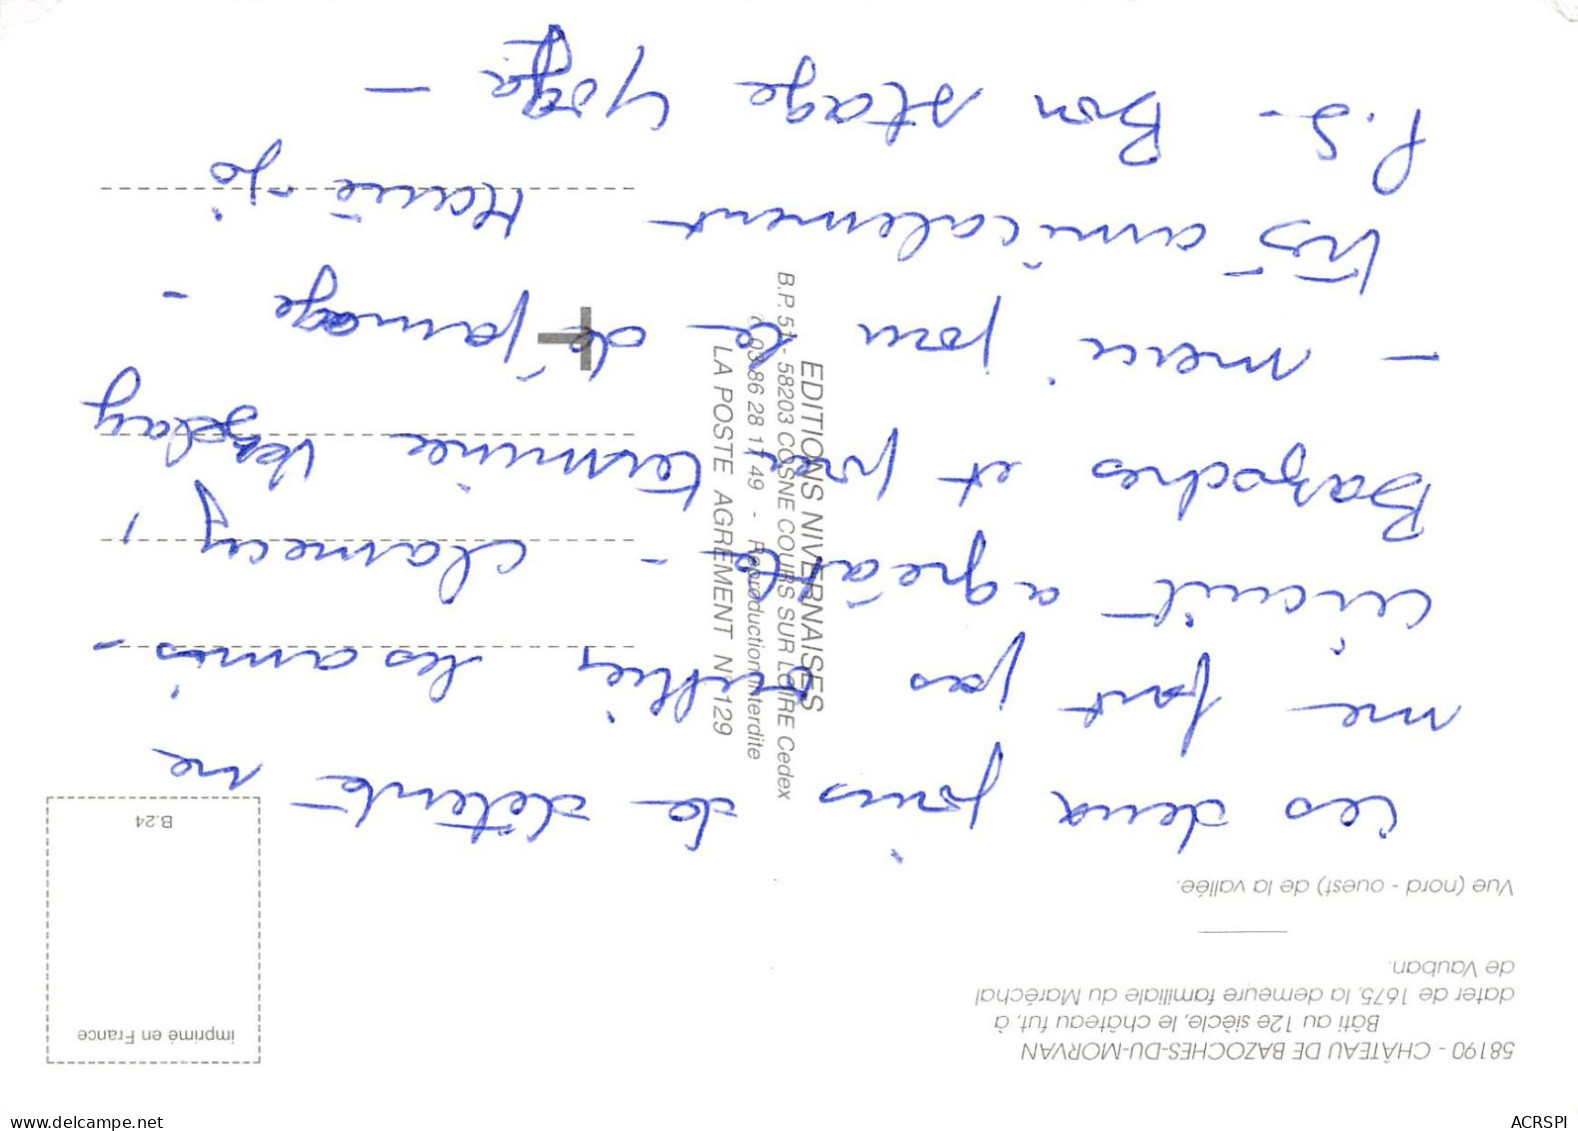 58190 - CHÂTEAU DE BAZOCHES-DU-MORVAN
Bâti au 12e siècle, le château fut, à
dater de 1675, la demeure familiale du Maréchal
de Vauban.
Vue (nord - ouest) de la vallée.
imprimé en France
B.24
Ces deux jours de détente ne
me font pas oublier les amis -
circuit agréable - Clamecy,
Bazoches et pour terminer Vezelay
- merci pour le dépannage -
Très amicalement Marie-Jo
P.S - Bon stage Yoga -
EDITIONS NIVERNAISES
B.P. 51 - 58203 COSNE COURS SUR LOIRE Cedex
03 86 28 17 49 - Reproduction interdite
LA POSTE AGREMENT N° 129
www.delcampe.net
ACRSPI